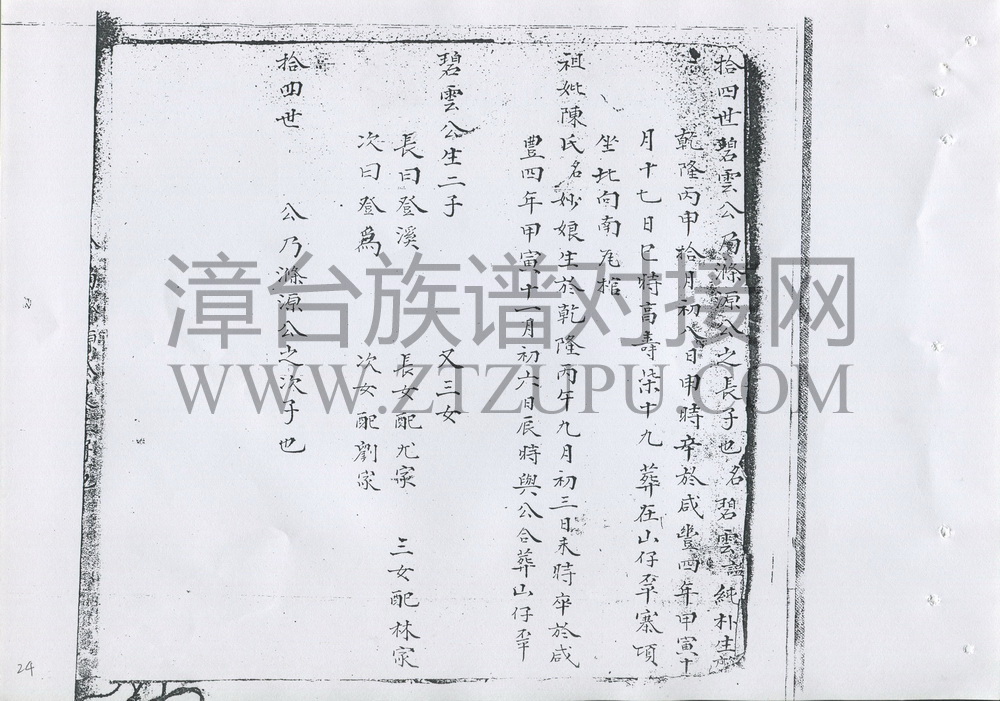 拾四世碧雲公乃滌源公之長子也名碧雲諡純朴生於
乾隆丙申拾月初八日申時卒於咸豊四年甲寅十
月十七日巳時高壽柒十九 葬在山仔平寨項
坐北向南瓦棺
祖妣陳氏名妙娘生於乾隆丙午九月初三日未時卒於咸
豊四年甲寅十一月初六日辰時與公合葬山仔平
碧雲公生二子 又三女
長曰登溪 長女配尤家 三女配林家
次曰登為 次女配劉家
拾四世 公乃滌源公之次子也
漳台族谱对接网
WWW.ZTZUPU.COM
24